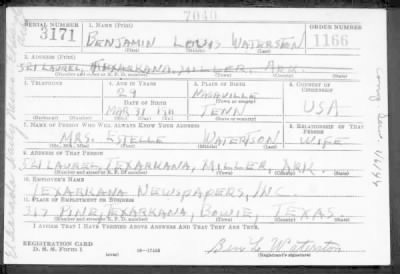 7040
SERIAL NUMBER 1. NAME (Print) ORDER NUMBER
3171 BENJAMIN LOUIS WATERSTON 1166
(First) (Middle) (Last)
2. ADDRESS (Print)
521 LAUREL, TEXARKANA, MILLER, ARK.
(Number and street or R. F. D. number) (Town) (County) (State)
3. TELEPHONE 4. AGE IN YEARS 5. PLACE OF BIRTH 6. COUNTRY OF CITIZENSHIP
29 NASHVILLE
(Town or county)
DATE OF BIRTH
MAR 31 1911 TENN USA
(Exchange) (Number) (Mo.) (Day) (Yr.) (State or country)
7. NAME OF PERSON WHO WILL ALWAYS KNOW YOUR ADDRESS 8. RELATIONSHIP OF THAT PERSON
MRS. ESTELLE WATERTSON WIFE
(Mr., Mrs., Miss) (First) (Middle) (Last)
9. ADDRESS OF THAT PERSON
521 LAUREL, TEXARKANA, MILLER, ARK
(Number and street or R. F. D. number) (Town) (County) (State)
10. EMPLOYER'S NAME
TEXARKANA NEWSPAPERS, INC.
11. PLACE OF EMPLOYMENT OR BUSINESS
317 PINE, TEXARKANA, BOWIE, TEXAS
(Number and street or R. F. D. number) (Town) (County) (State)
I AFFIRM THAT I HAVE VERIFIED ABOVE ANSWERS AND THAT THEY ARE TRUE.
REGISTRATION CARD
D. S. S. Form 1 (over) 16-17105 Ben L. Waterston
(Registrant's signature)